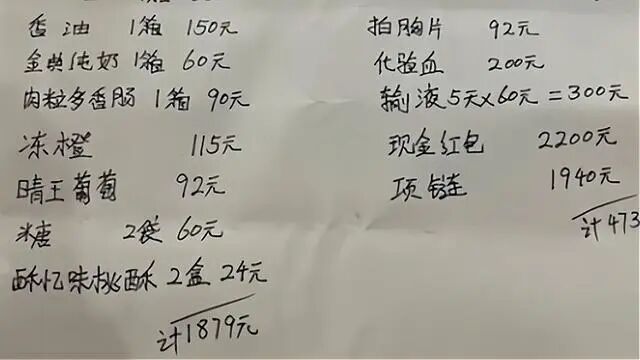 香油 1箱 150元
金典纯奶 1箱 60元
肉粒多香肠 1箱 90元
冻橙 115元
晴王葡萄 92元
糖 2袋 60元
酥忆味桃酥 2盒 24元
计1879元
拍胸片 92元
化验血 200元
输液5天×60元=300元
现金红包 2200元
项链 1940元
计473